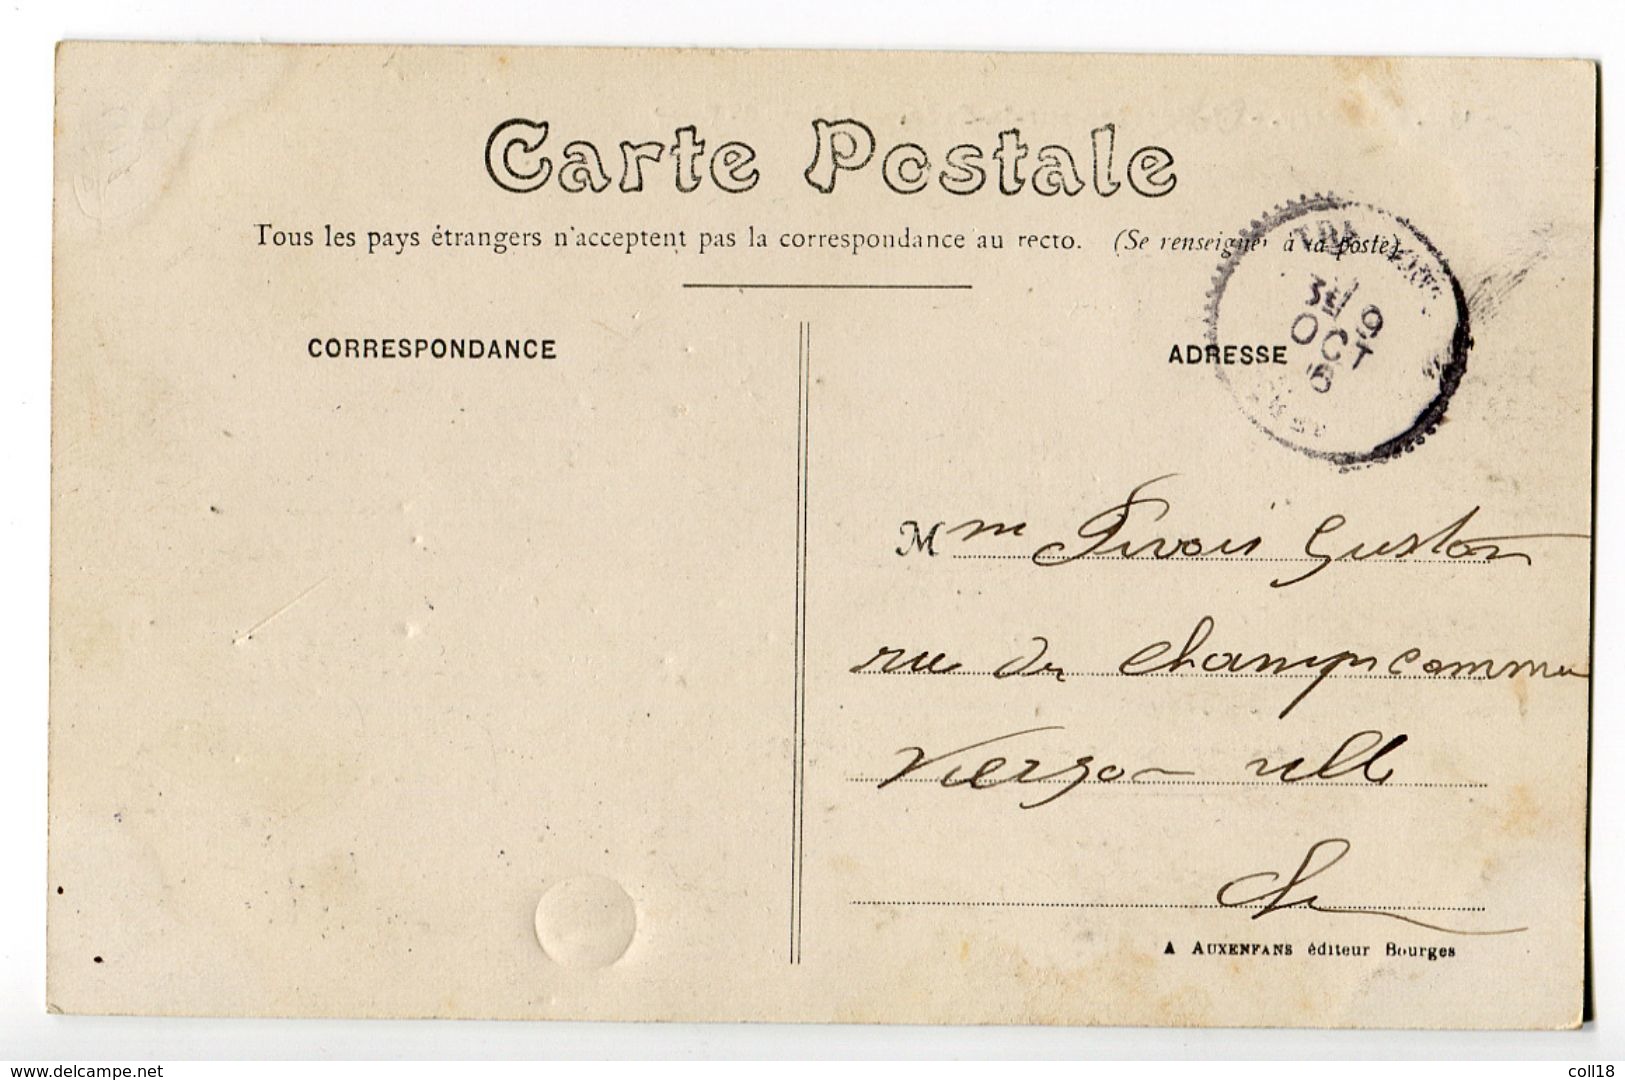 Carte Postale
Tous les pays étrangers n'acceptent pas la correspondance au recto. (Se renseigner à la poste)
CORRESPONDANCE
ADRESSE
3E/ 9
OCT
M me Pivois Guston
rue du champ commun
Vierzon ville
Cher
A AUXENFANS éditeur Bourges
www.delcampe.net
coll18